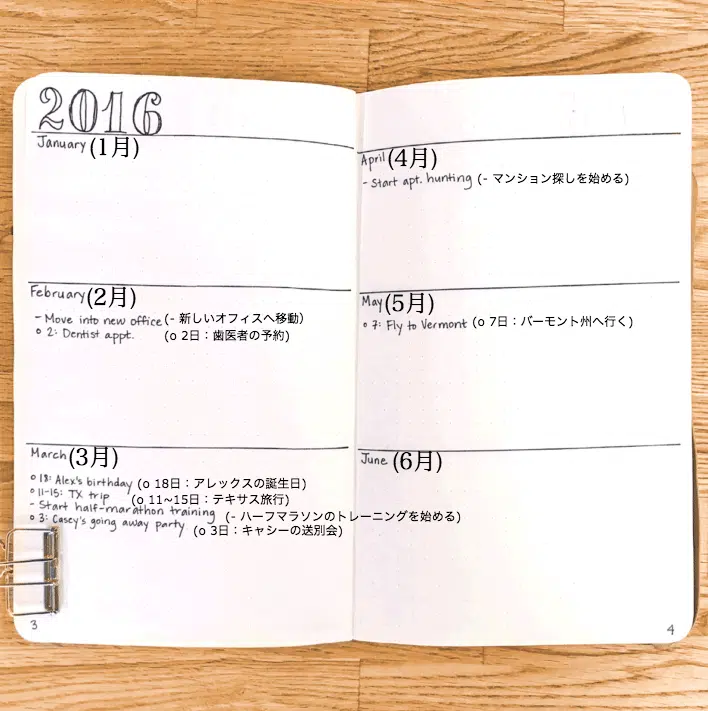 2016
January (1月)
February (2月)
- Move into new office (- 新しいオフィスへ移動)
o 2: Dentist appt. (o 2日：歯医者の予約)
March (3月)
o 18: Alex's birthday (o 18日：アレックスの誕生日)
o 11-15: TX trip (o 11~15日：テキサス旅行)
- Start half-marathon training (- ハーフマラソンのトレーニングを始める)
o 3: Casey's going away party (o 3日：キャシーの送別会)
3
April (4月)
- Start apt. hunting (- マンション探しを始める)
May (5月)
o 7: Fly to Vermont (o 7日：バーモント州へ行く)
June (6月)
4